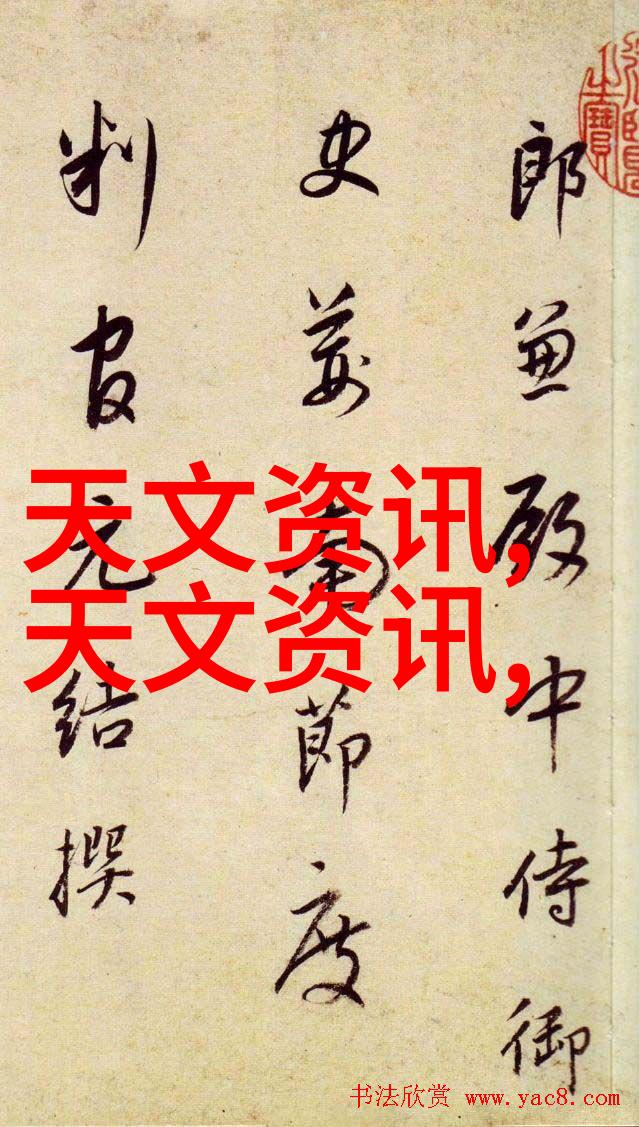 郎兼殿中侍御
史荊南節度
判官元結撰
天文资讯,
天文资讯,
书法欣赏 www.yac8.com